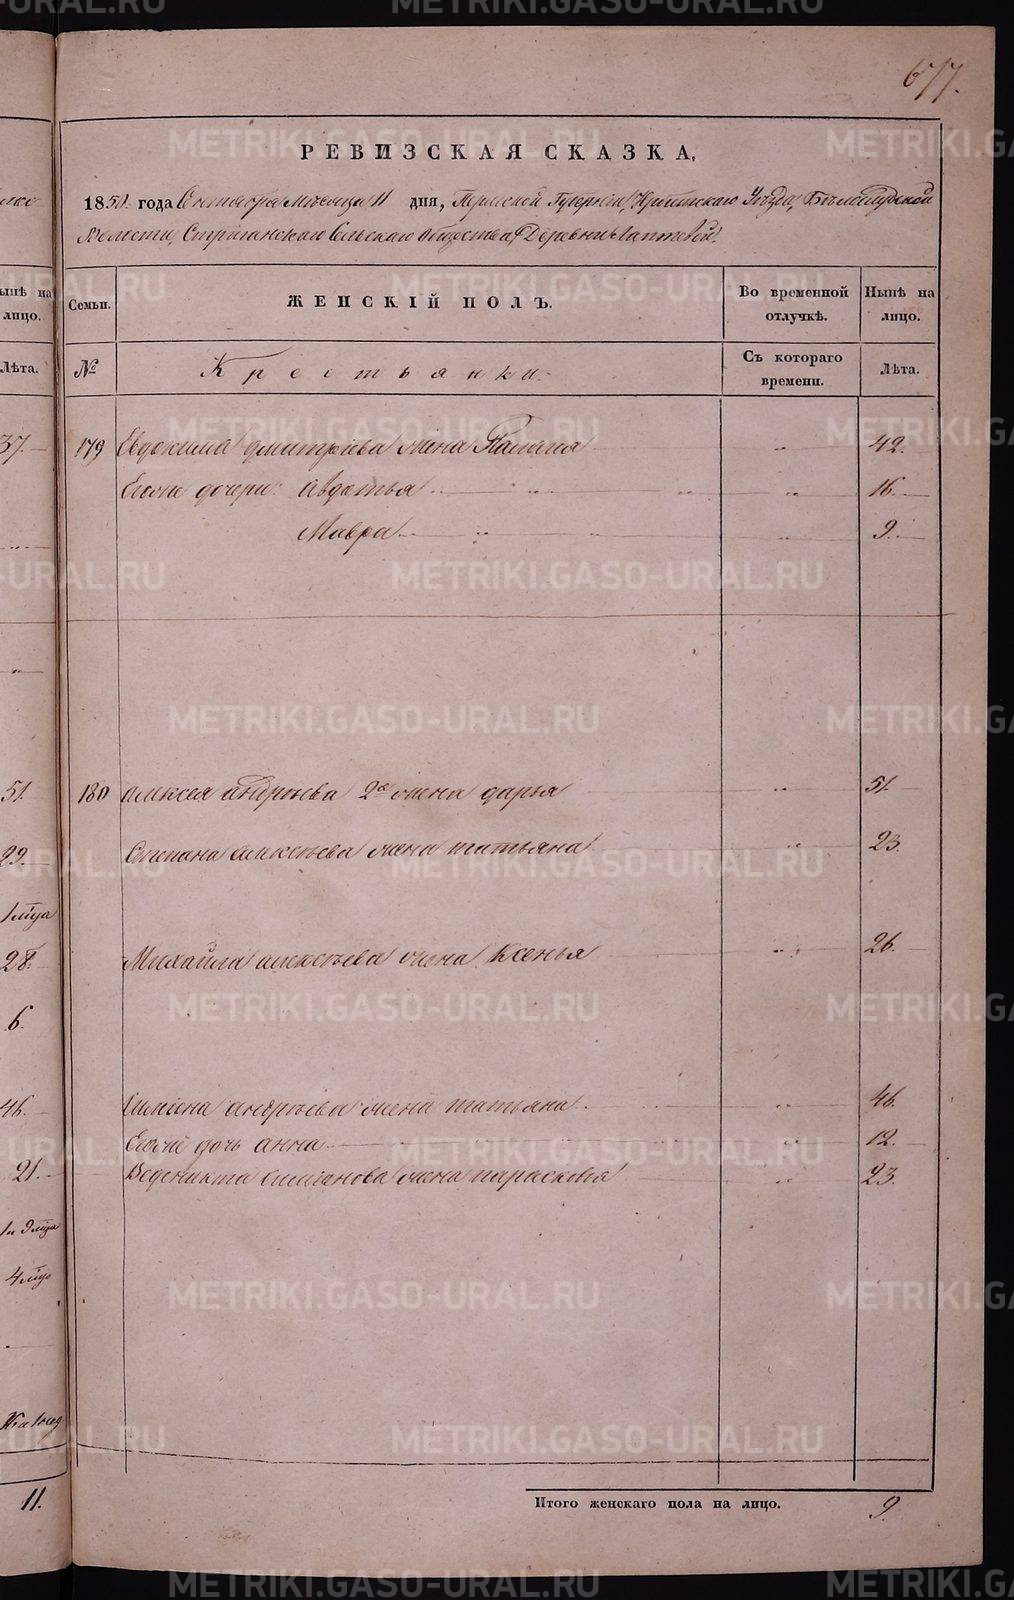 677.
РЕВИЗСКАЯ СКАЗКА,
1850 года Сентября месяца 11 дня, Пермской Губерніи, Ирбитскаго Уѣзда, Бѣлослудской
Волости, Стриганскаго Сельскаго Общества, Деревни Лаптевой.
Нынѣ на лицо.
Семьи.
ЖЕНСКІЙ ПОЛЪ.
Во временной отлучкѣ.
Нынѣ на лицо.
Лѣта.
№
Крестьянки.
Съ котораго времени.
Лѣта.
37. 179 Евдокима Дмитріева жена 42.
Его же дочери: Авдотья 16.
Мавра 9.
51. 180 Алексея Андрѣева 2я жена Дарья 51.
29. Степана Алексѣева жена Татьяна 23.
28. Михайла Алексѣева жена Ксенья 26.
6.
46. Симіона Андрѣева жена Татьяна 46.
Его же дочь Анна 12.
21. Веденикта Симіонова жена Парасковья 23.
11.
Итого женскаго пола на лицо. 9.
METRIKI.GASO-URAL.RU